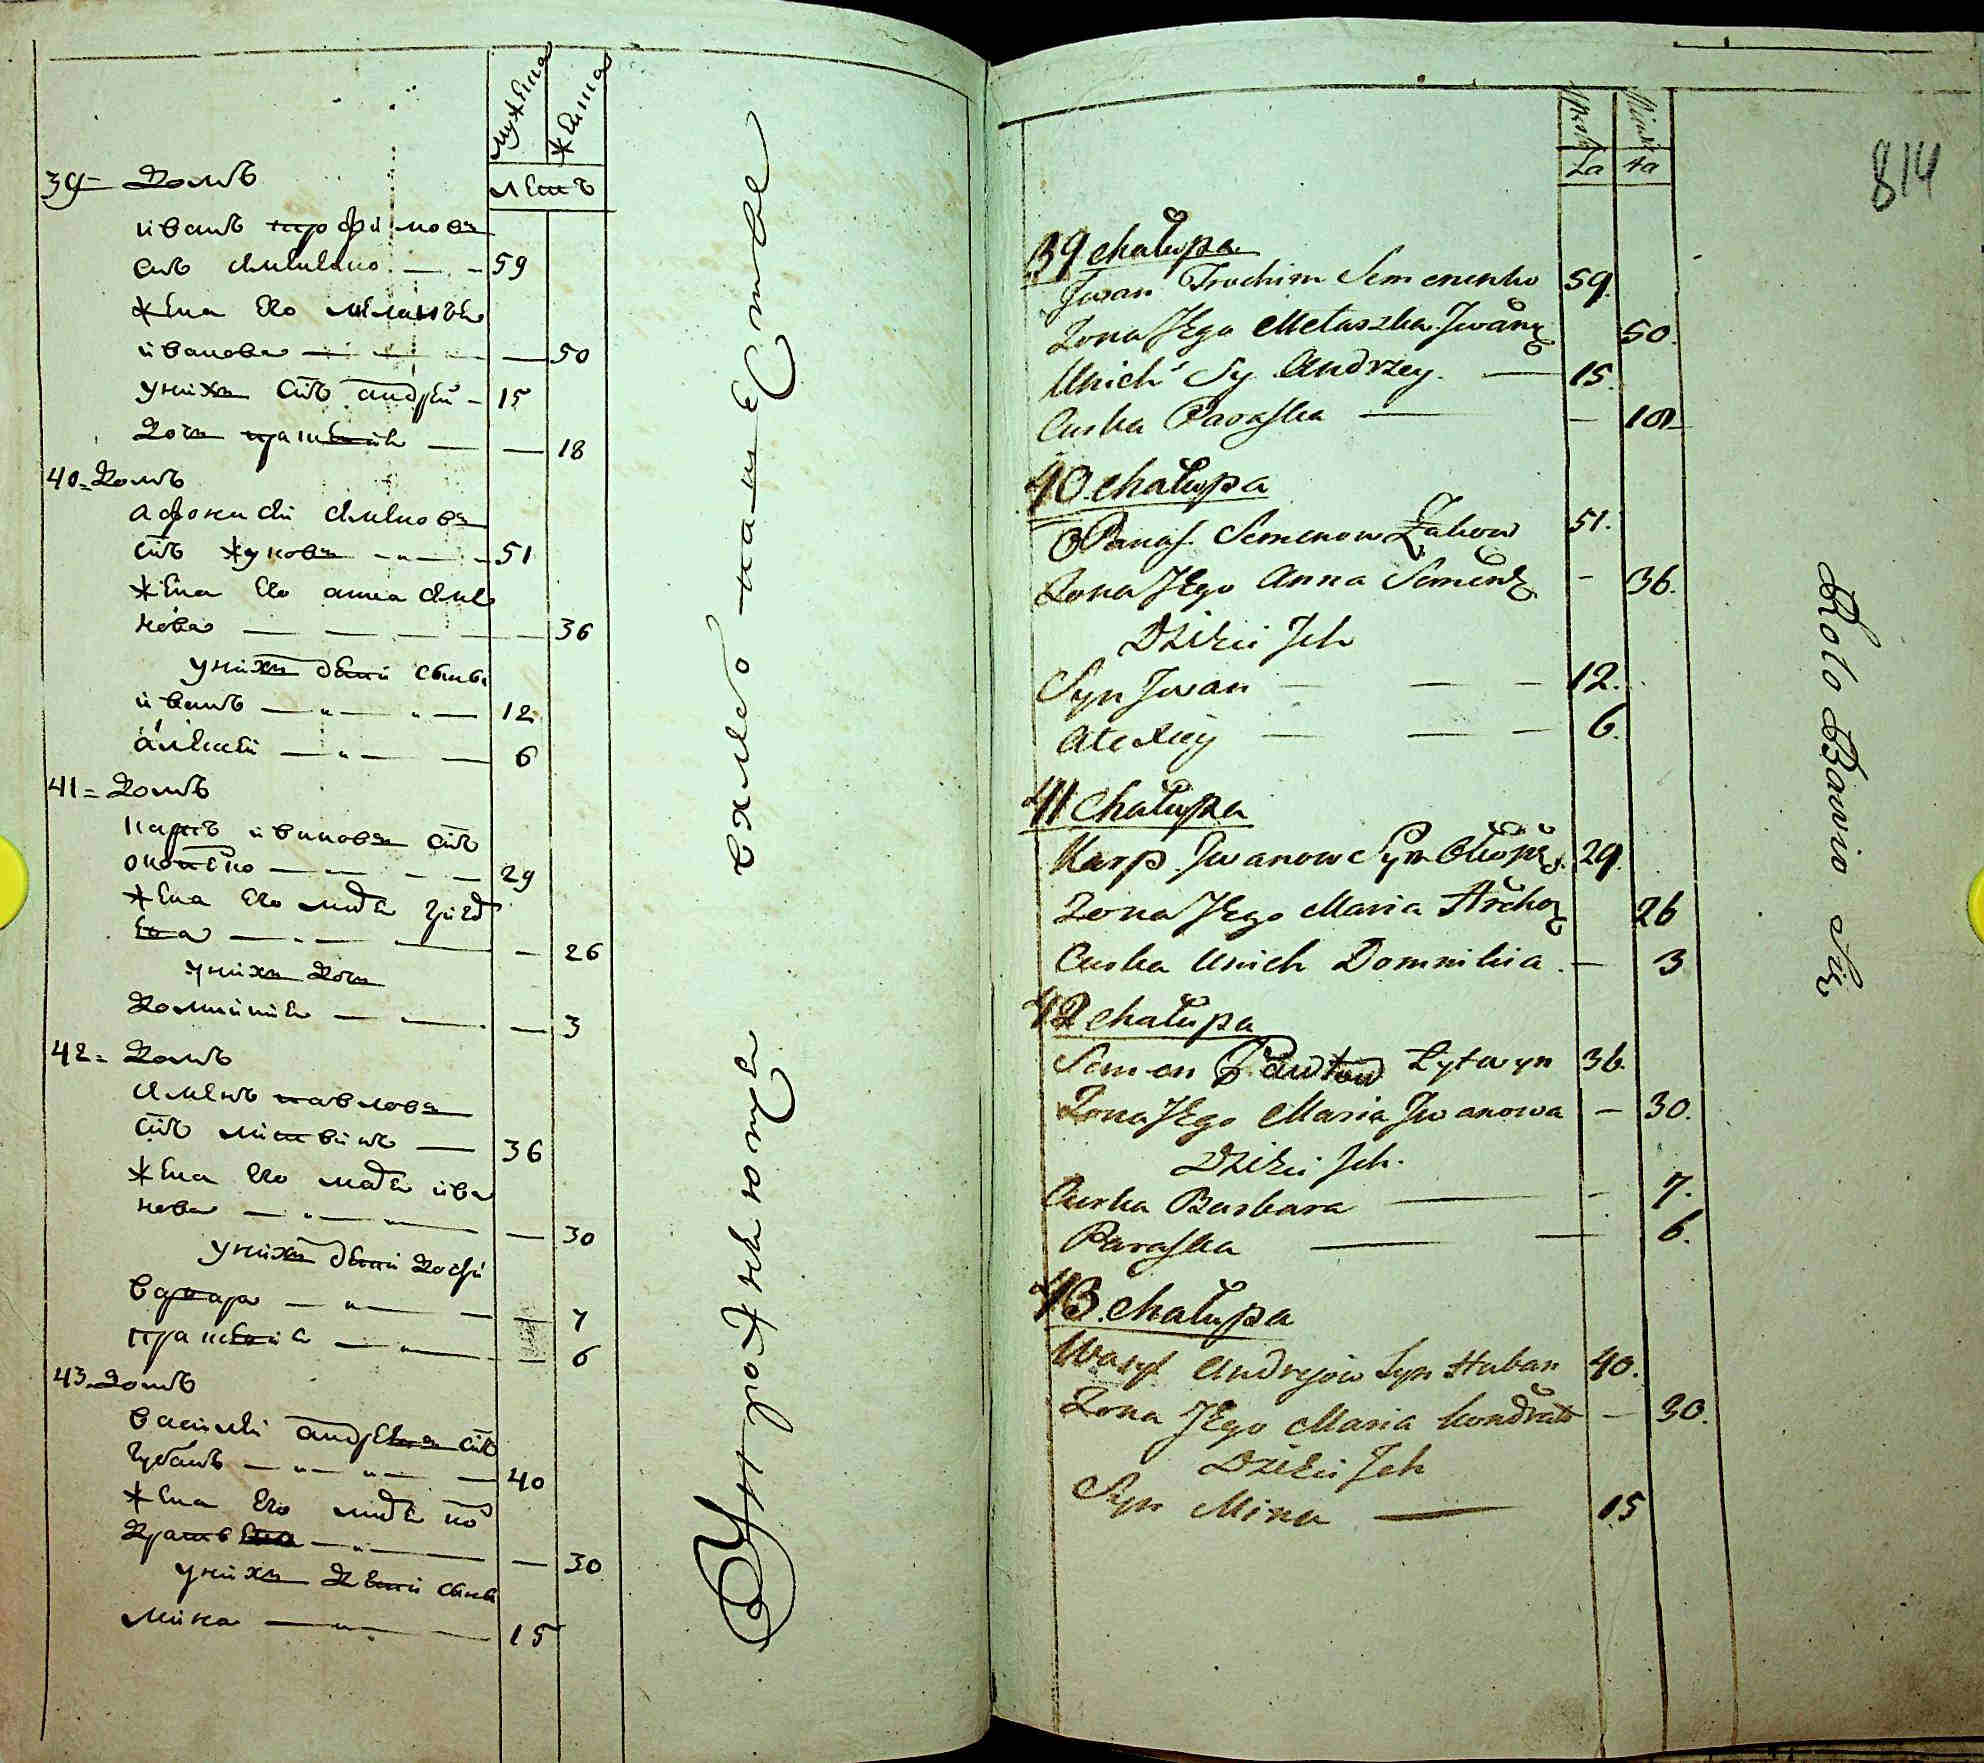 мужеска
женска
летъ
39 - Домъ
иванъ трофимовъ
сн҃ъ семененко 59
жена его меланья
иванова 50
у нихъ сн҃ъ андрей 15
дочь праскевiя 18
40 = Домъ
афонасiй семеновъ
сн҃ъ жуковъ 51
жена его анна семе
нова 36
у нихъ дети сыны
иванъ 12
алексей 6
41 = Домъ
карпъ ивановъ сн҃ъ
29
жена его
26
у нихъ дочь
доминикiя 3
42 = Домъ
семенъ павловъ
сн҃ъ литвинъ 36
жена его марiя ива
нова 30
у нихъ дети дочери
варвара 7
праскевiя 6
43 - Домъ
василiй андреевъ сн҃ъ
губанъ 40
жена его марiя ко
дратьева 30
у нихъ дети сыны
мина 15
814
39 chałupa
Jwan Trochim Semenenko 59.
Zona Jego Małaszka Jwanó 50.
Unich Sy Andrzey. 15.
Curka Paraska 18
40. chałupa
OPanas. Semenow Żukow 51.
Zona Jego Anna Semenó 36.
Dzieci Jch
Syn Jwan 12.
Alexiey 6.
41 Chałupa
Karp Jwanow Syn 29.
Zona Jego Maria 26
Curka Unich Domnikia. 3
42 chałupa
Semen Pawłow Łytwyn 36.
Zona Jego Maria Jwanowa 30.
Dzieci Jch.
Curka Barbara 7.
Paraska 6.
43. chałupa
Wasyl Andrejow Syn Huban 40.
Zona Jego Maria Kondrat 30.
Dzieci Jch
Syn Mina 15